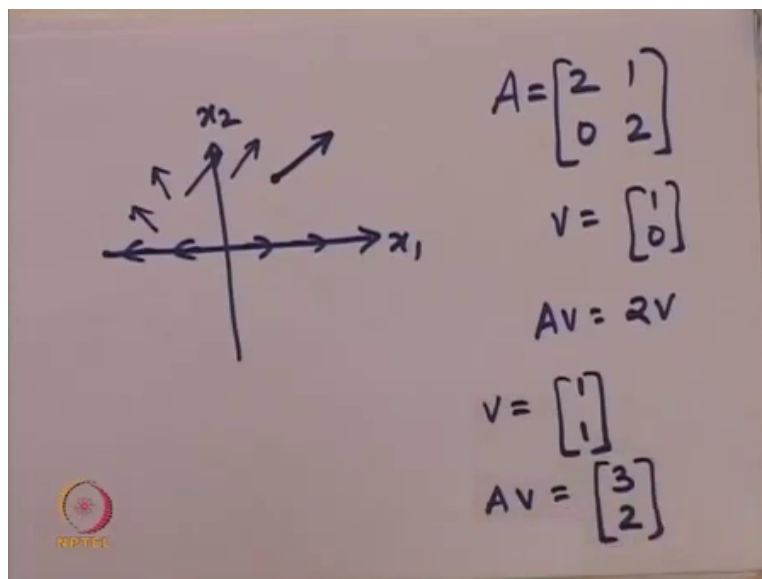 x2
x1
A = [2 1
0 2]
V = [1
0]
AV = 2V
V = [1
1]
AV = [3
2]
NPTEL